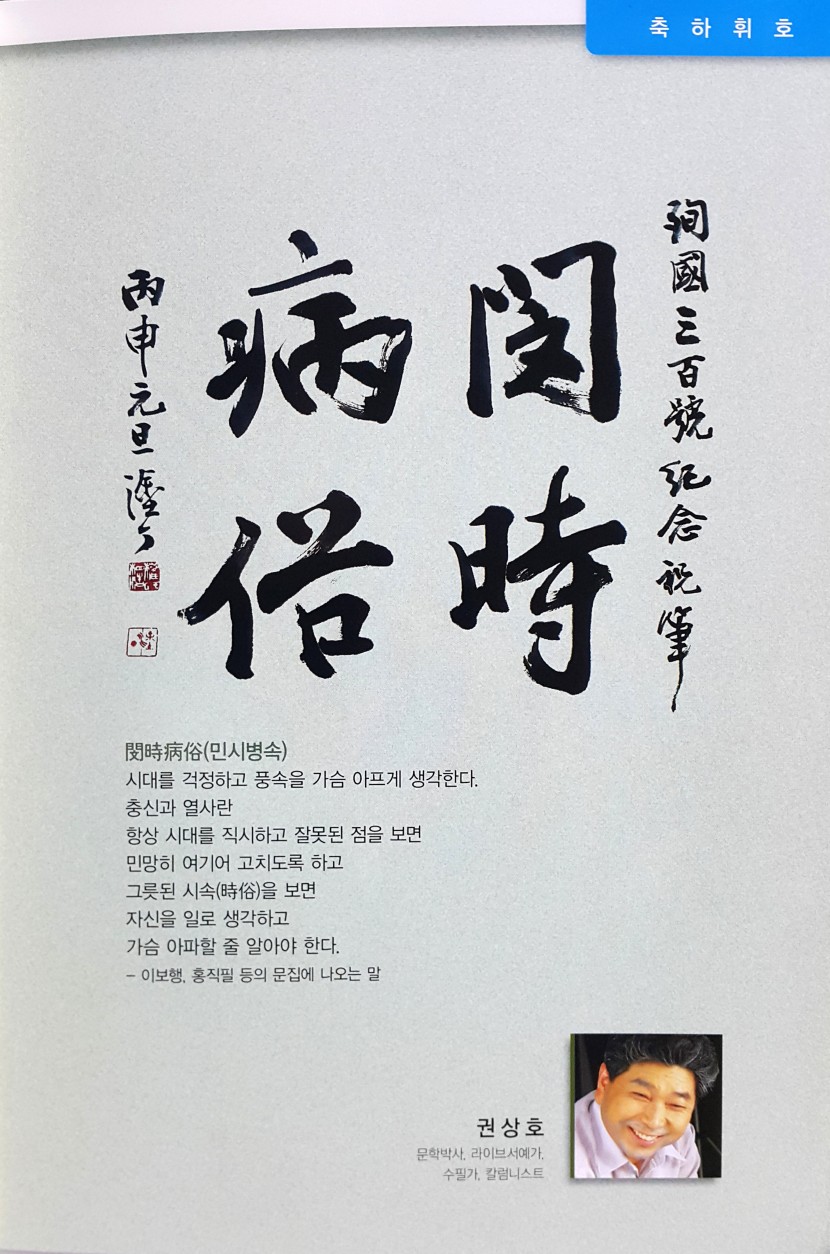 축하휘호
殉國三百號紀念祝筆
閔時
病俗
丙申元旦 塗丁
閔時病俗(민시병속)
시대를 걱정하고 풍속을 가슴 아프게 생각한다.
충신과 열사란
항상 시대를 직시하고 잘못된 점을 보면
민망히 여기어 고치도록 하고
그릇된 시속(時俗)을 보면
자신을 일로 생각하고
가슴 아파할 줄 알아야 한다.
– 이보행, 홍직필 등의 문집에 나오는 말
권상호
문학박사, 라이브서예가,
수필가, 칼럼니스트